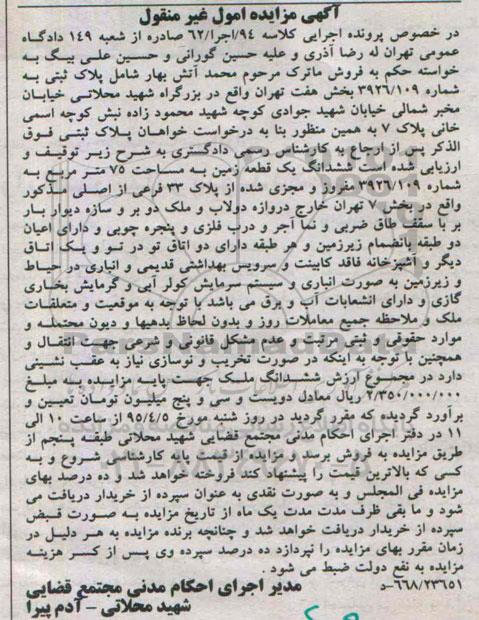 آگهی مزایده امول غیر منقول
در خصوص پرونده اجرایی کلاسه ۹۴/اجرا/۶۲ صادره از شعبه ۱۴۹ دادگاه
عمومی تهران له رضا آذری و علیه حسین گورانی و حسین علی بیگ به
خواسته حکم به فروش ماترک مرحوم محمد آتش بهار شامل پلاک ثبتی به
شماره ۳۹۲۶/۱۰۹ بخش هفت تهران واقع در بزرگراه شهید محلاتی خیابان
مخبر شمالی خیابان شهید جوادی کوچه شهید محمود زاده نبش کوچه اسمی
خانی پلاک ۷ به همین منظور بنا به درخواست خواهان پلاک ثبتی فوق
الذکر پس از ارجاع به کارشناس رسمی دادگستری به شرح زیر توقیف و
ارزیابی شده است. ششدانگ یک قطعه زمین به مساحت ۷۵ متر مربع به
شماره ۳۹۲۶/۱۰۹ مفروز و مجزی شده از پلاک ۳۳ فرعی از اصلی مذکور
واقع در بخش ۷ تهران خارج دروازه دولاب و ملک دو بر و سازه دیوار بار
بر با سقف طاق ضربی و نما آجر و درب فلزی و پنجره چوبی و دارای اعیان
دو طبقه بانضمام زیرزمین و هر طبقه دارای دو اتاق تو در تو و یک اتاق
دیگر و آشپزخانه فاقد کابینت و سرویس بهداشتی قدیمی و انباری در حیاط
و زیرزمین به صورت انباری و سیستم سرمایش کولر آبی و گرمایش بخاری
گازی و دارای انشعابات آب و برق می باشد با توجه به موقعیت و متعلقات
ملک و ملاحظه جمیع معاملات روز و بدون لحاظ بدهیها و دیون محتمله و
موارد حقوقی و ثبتی مرتبت و عدم مشکل قانونی و شرعی جهت انتقال و
همچنین با توجه به اینکه در صورت تخریب و نوسازی نیاز به عقب نشینی
دارد در مجموع ارزش ششدانگ ملک جهت پایه مزایده به مبلغ
۲/۳۵۰/۰۰۰/۰۰۰ ریال معادل دویست و سی و پنج میلیون تومان تعیین و
برآورد گردیده که مقرر گردید در روز شنبه مورخ ۹۵/۴/۵ از ساعت ۱۰ الی
۱۱ در دفتر اجرای احکام مدنی مجتمع قضایی شهید محلاتی طبقه پنجم از
طریق مزایده به فروش برسد و مزایده از قیمت پایه کارشناسی شروع و به
کسی که بالاترین قیمت را پیشنهاد کند فروخته خواهد شد و ده درصد بهای
مزایده فی المجلس و به صورت نقدی به عنوان سپرده از خریدار دریافت می
شود و ما بقی ظرف مدت مدت یک ماه از تاریخ مزایده به صورت قبض
سپرده از خریدار دریافت خواهد شد و چنانچه برنده مزایده به هر دلیل در
زمان مقرر بهای مزایده را نپردازد ده درصد سپرده وی پس از کسر هزینه
مزایده به نفع دولت ضبط می شود .
۶۶۸/۲۳۶۵۱-د
مدیر اجرای احکام مدنی مجتمع قضایی
شهید محلاتی – آدم پیرا